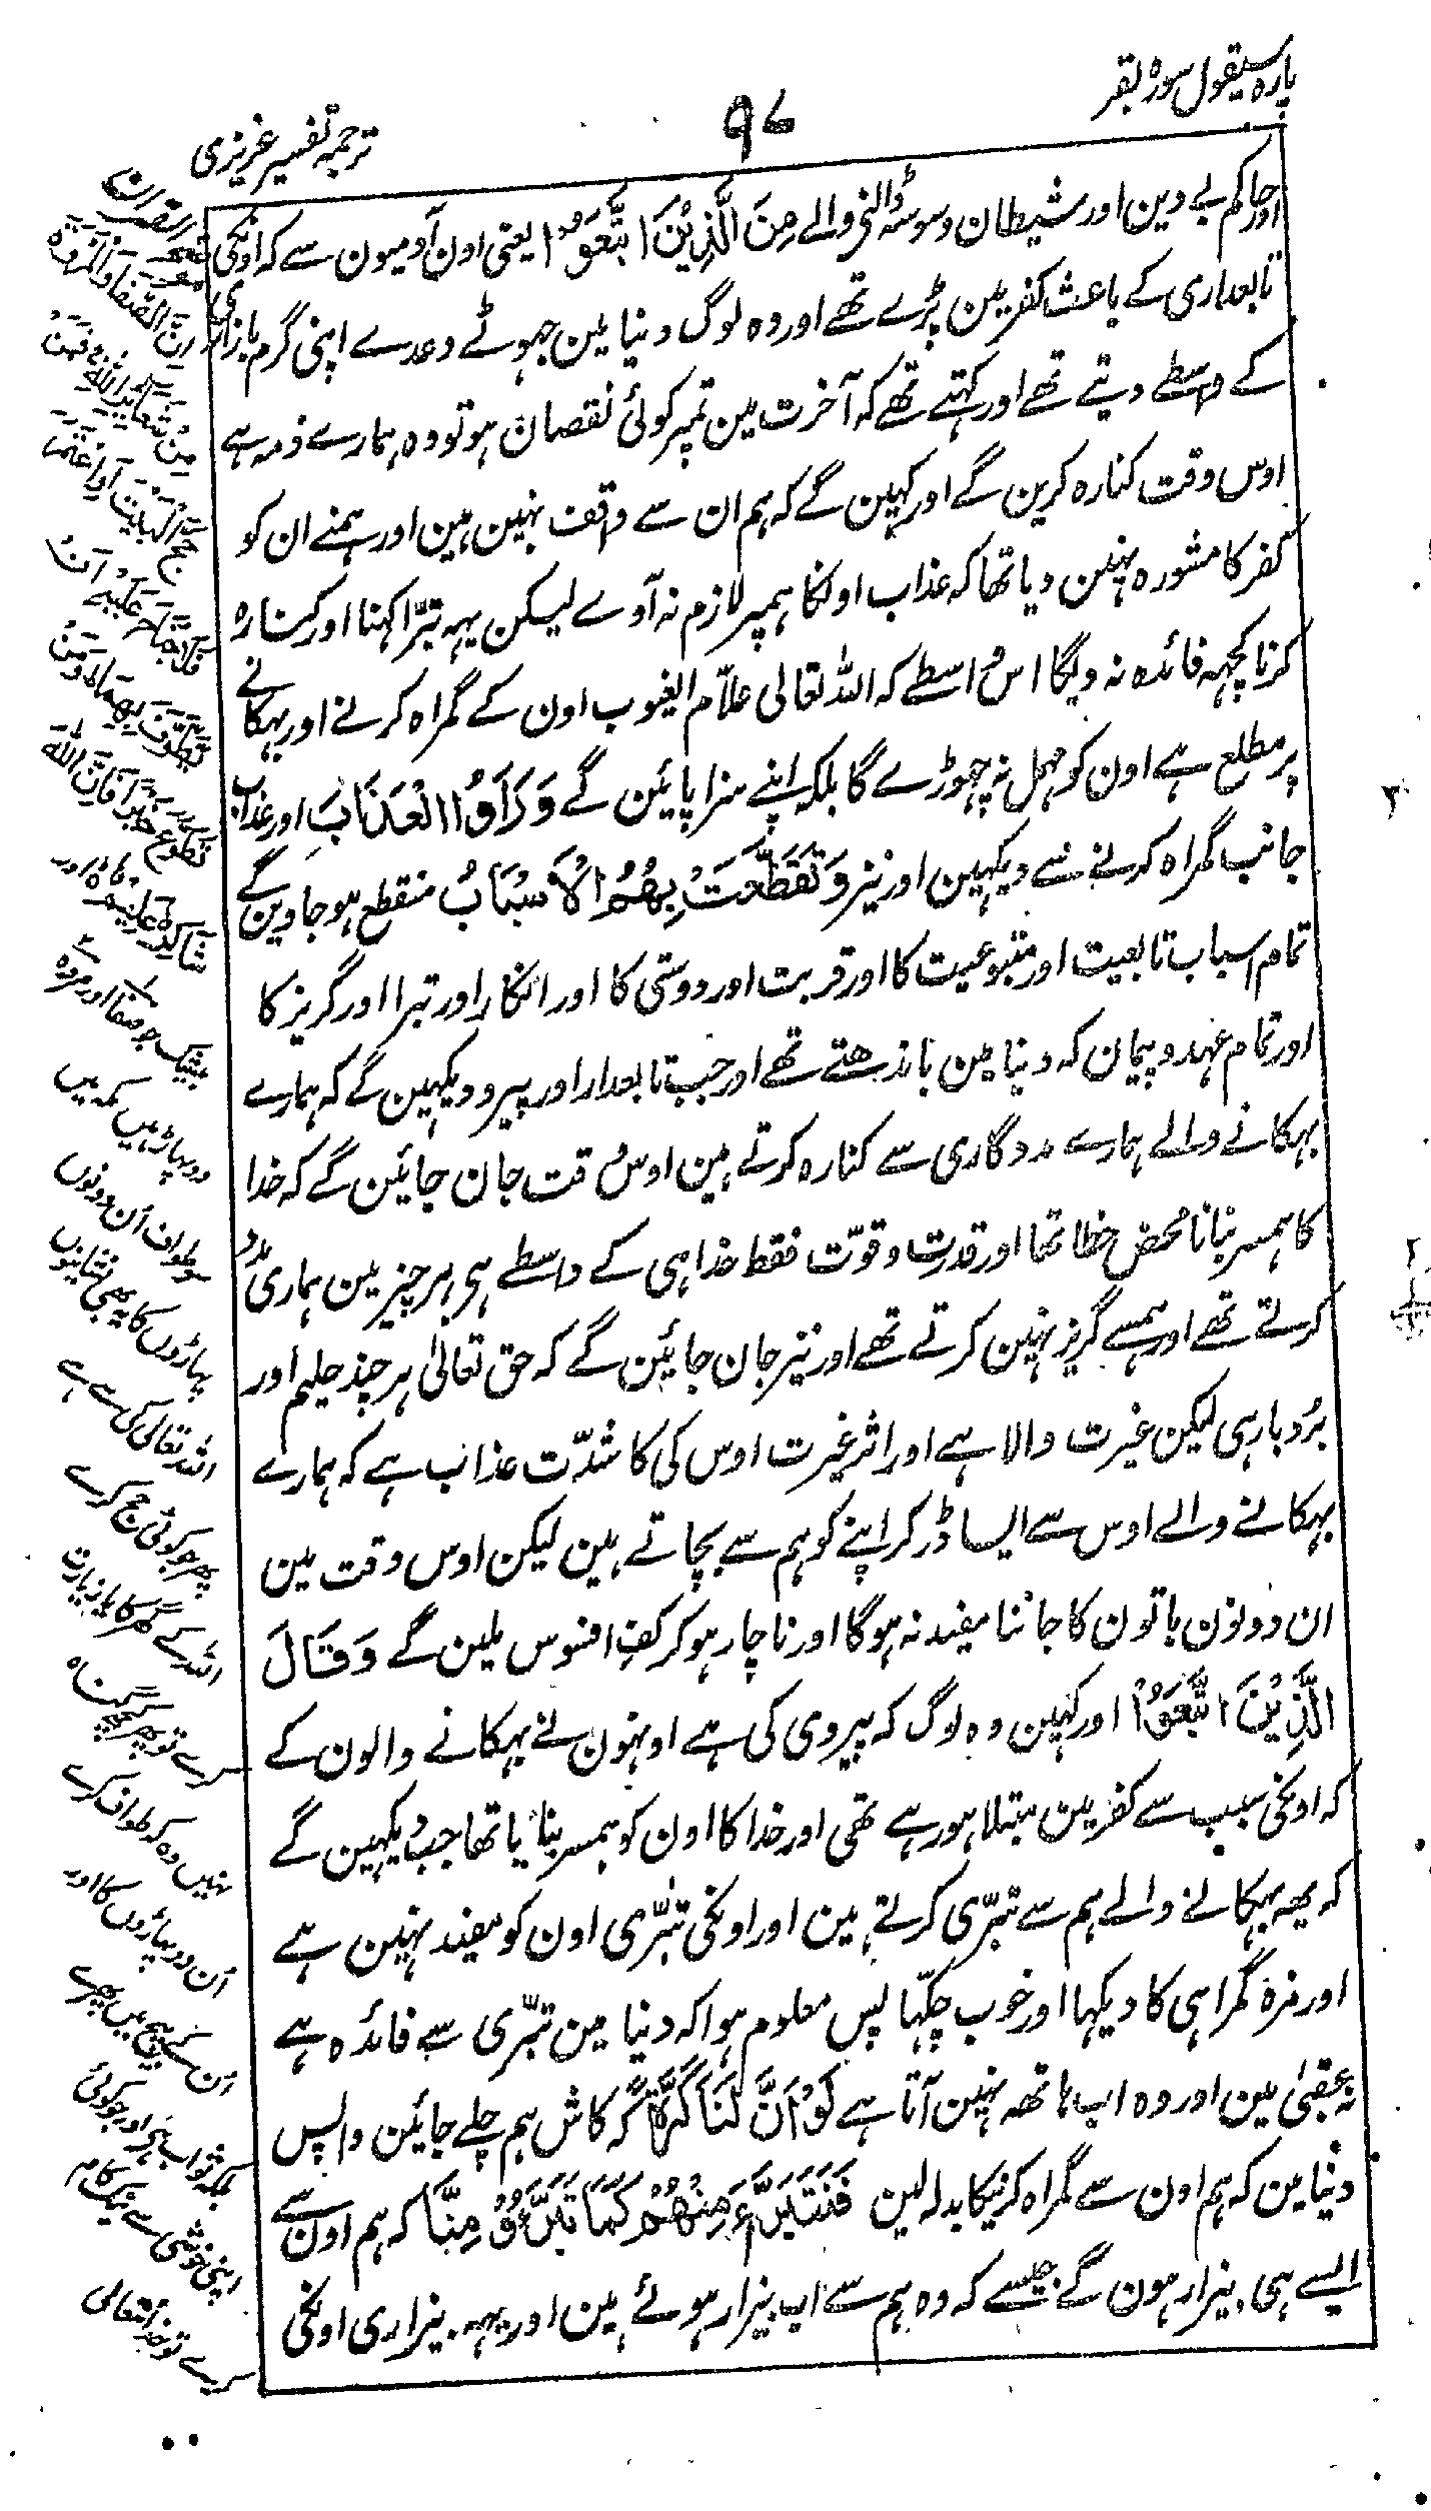 پارہ سیقول سورہ بقر
۹۷
ترجمہ تفسیر عزیزی
اور حاکم بے دین اور شیطان وسوسہ ڈالنی والے مِنَ الَّذِیْنَ اتَّبَعُوْا یعنی اون آدمیون سے کہ اونکی
تابعداری کے باعث کفر مین پڑے تھے اور وہ لوگ دنیا مین جھوٹے وعدے اپنی گرم بازاری
کے واسطے دیتے تھے اور کہتے تھے کہ آخرت مین تمپر کوئی نقصان ہو تو وہ ہمارے ذمہ ہے
اوس وقت کنارہ کرین گے اور کہین گے کہ ہم ان سے واقف نہین ہین اور ہمنے ان کو
کفر کا مشورہ نہین دیا تھا کہ عذاب اونکا ہمپر لازم نہ آوے لیکن یہہ تبرّا کہنا اور کنارہ
کرنا کچھہ فائدہ نہ دیگا اس واسطے کہ اللہ تعالی علّام الغیوب اون کے گمراہ کرنے اور بہکانے
پر مطلع ہے اون کو مہمل نہ چھوڑے گا بلکہ اپنے سزا پائین گے وَرَاَوُا الْعَذَابَ اور عذاب
جانب گمراہ کرنے سے دیکہین اور نیز وَتَقَطَّعَتْ بِهِمُ الْاَسْبَابُ منقطع ہو جاوین گے
تمام اسباب تابعیت اور متبوعیت کا اور قربت اور دوستی کا اور انکار اور تبرا اور گریز کا
اور تمام عہد و پیمان کہ دنیا مین باندھتے تھے اور جب تابعدار اور پیرو دیکہین گے کہ ہمارے
بہکانے والے ہمارے مددگاری سے کنارہ کرتے ہین اوس وقت جان جائین گے کہ خدا
کا ہمسر بنانا محض خطا تھا اور قدرت و قوّت فقط خدا ہی کے واسطے ہی ہر چیز مین ہماری مدد
کرتے تھے اور ہمسے گریز نہین کرتے تھے اور نیز جان جائین گے کہ حق تعالیٰ ہر چند حلیم اور
بُردبار ہی لیکن غیرت والا ہے اور اثر غیرت اوس کی کا شدّت عذاب ہے کہ ہمارے
بہکانے والے اوس سے ایسا ڈر کر اپنے کو ہم سے بچاتے ہین لیکن اوس وقت مین
ان دونون باتون کا جاننا مفید نہ ہوگا اور ناچار ہو کر کفِ افسوس ملین گے وَقَالَ
الَّذِیْنَ اتَّبَعُوْا اور کہین وہ لوگ کہ پیروی کی ہے اونہون نے بہکانے والون کے
کہ اونکی سبب سے کفر مین مبتلا ہو رہے تھی اور خدا کا اون کو ہمسر بنایا تھا جب دیکہین گے
کہ یہہ بہکانے والے ہم سے تبرّی کرتے ہین اور اونکی تبرّی اون کو مفید نہین ہے
اور مزہ گمراہی کا دیکہا اور خوب چکھا پس معلوم ہوا کہ دنیا مین تبرّی سے فائدہ ہے
نہ عقبیٰ مین اور وہ اب ہاتھہ نہین آتا ہے لَوْ اَنَّ لَنَا كَرَّةً کہ کاش ہم چلے جائین واپس
دنیا مین کہ ہم اون سے گمراہ کرنیکا بدلہ لین فَنَتَبَرَّءَ مِنْهُمْ كَمَا تَبَرَّءُوْ مِنَّا کہ ہم اون سے
ایسے ہی بیزار ہون گے جیسے کہ وہ ہم سے اب بیزار ہوئے ہین اور یہہ بیزاری اونکی
اِنَّ الصَّفَا وَالْمَرْوَةَ
مِنْ شَعَآئِرِ اللّٰهِ فَمَنْ
حَجَّ الْبَیْتَ اَوِاعْتَمَرَ
فَلَا جُنَاحَ عَلَیْهِ اَنْ
یَّطَّوَّفَ بِهِمَا وَمَنْ
تَطَوَّعَ خَیْرًا فَاِنَّ اللّٰهَ
شَاكِرٌ عَلِیْمٌ
بیشک جو صفا اور مروہ
دو پہاڑ ہیں مکہ میں
سو طواف اُن دونوں
پہاڑوں کا یہ بھی نشانیوں
اللہ تعالی کی سے ہے
پھر جو کوئی حج کرے
اللہ کے گھر کا یا زیارت
کرے تو پھر کچھ گناہ
نہیں وہ کہ طواف کرے
اُن دو پہاڑوں کا اور
اِن کے بیچ میں پھرے
بلکہ ثواب ہے اور جو کوئی
اپنی خوشی سے نیک کام
کرے تو خدا تعالی